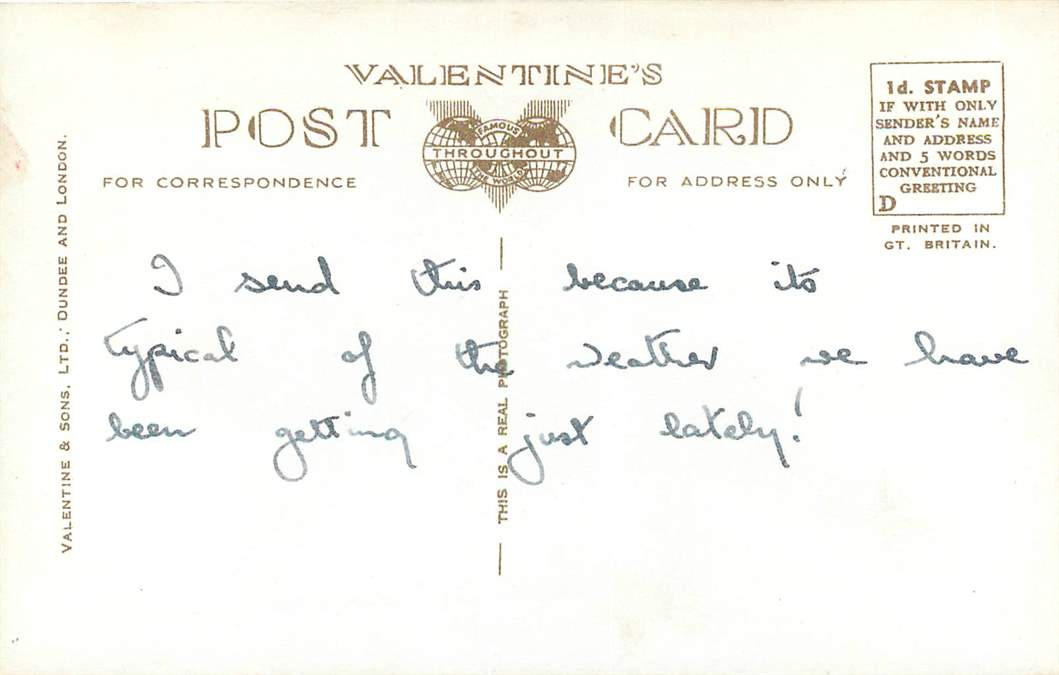 VALENTINE'S
POST CARD
FAMOUS
THROUGHOUT
THE WORLD
FOR CORRESPONDENCE
FOR ADDRESS ONLY
1d. STAMP
IF WITH ONLY
SENDER'S NAME
AND ADDRESS
AND 5 WORDS
CONVENTIONAL
GREETING
D
PRINTED IN
GT. BRITAIN.
VALENTINE & SONS, LTD., DUNDEE AND LONDON.
THIS IS A REAL PHOTOGRAPH
I send this because its
typical of the weather we have
been getting just lately!